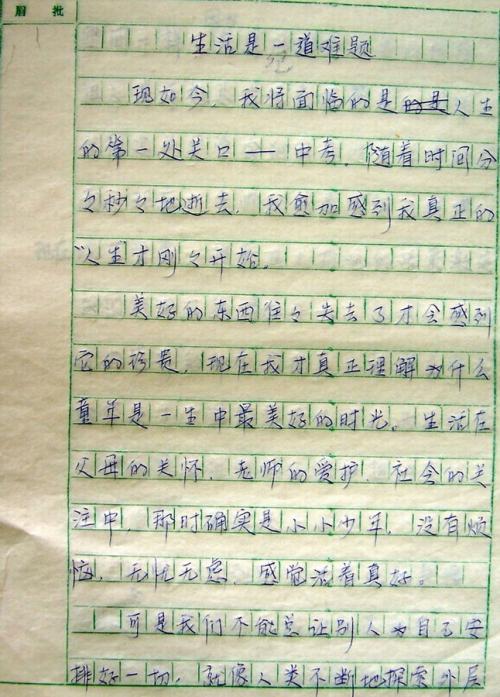 眉 批
生活是一道难题
现如今，我将面临的是人生
的第一处关口——中考。随着时间分
々秒々地逝去，我愈加感到我真正的
"人生才刚々开始。
美好的东西往々失去了才会感到
它的珍贵，现在我才真正理解为什么
童年是一生中最美好的时光。生活在
父母的关怀，老师的爱护，社会的关
注中，那时确实是小小少年，没有烦
恼，无忧无虑，感觉活着真好。
可是我们不能总让别人为自己安
排好一切，就像人类不断地探索外层